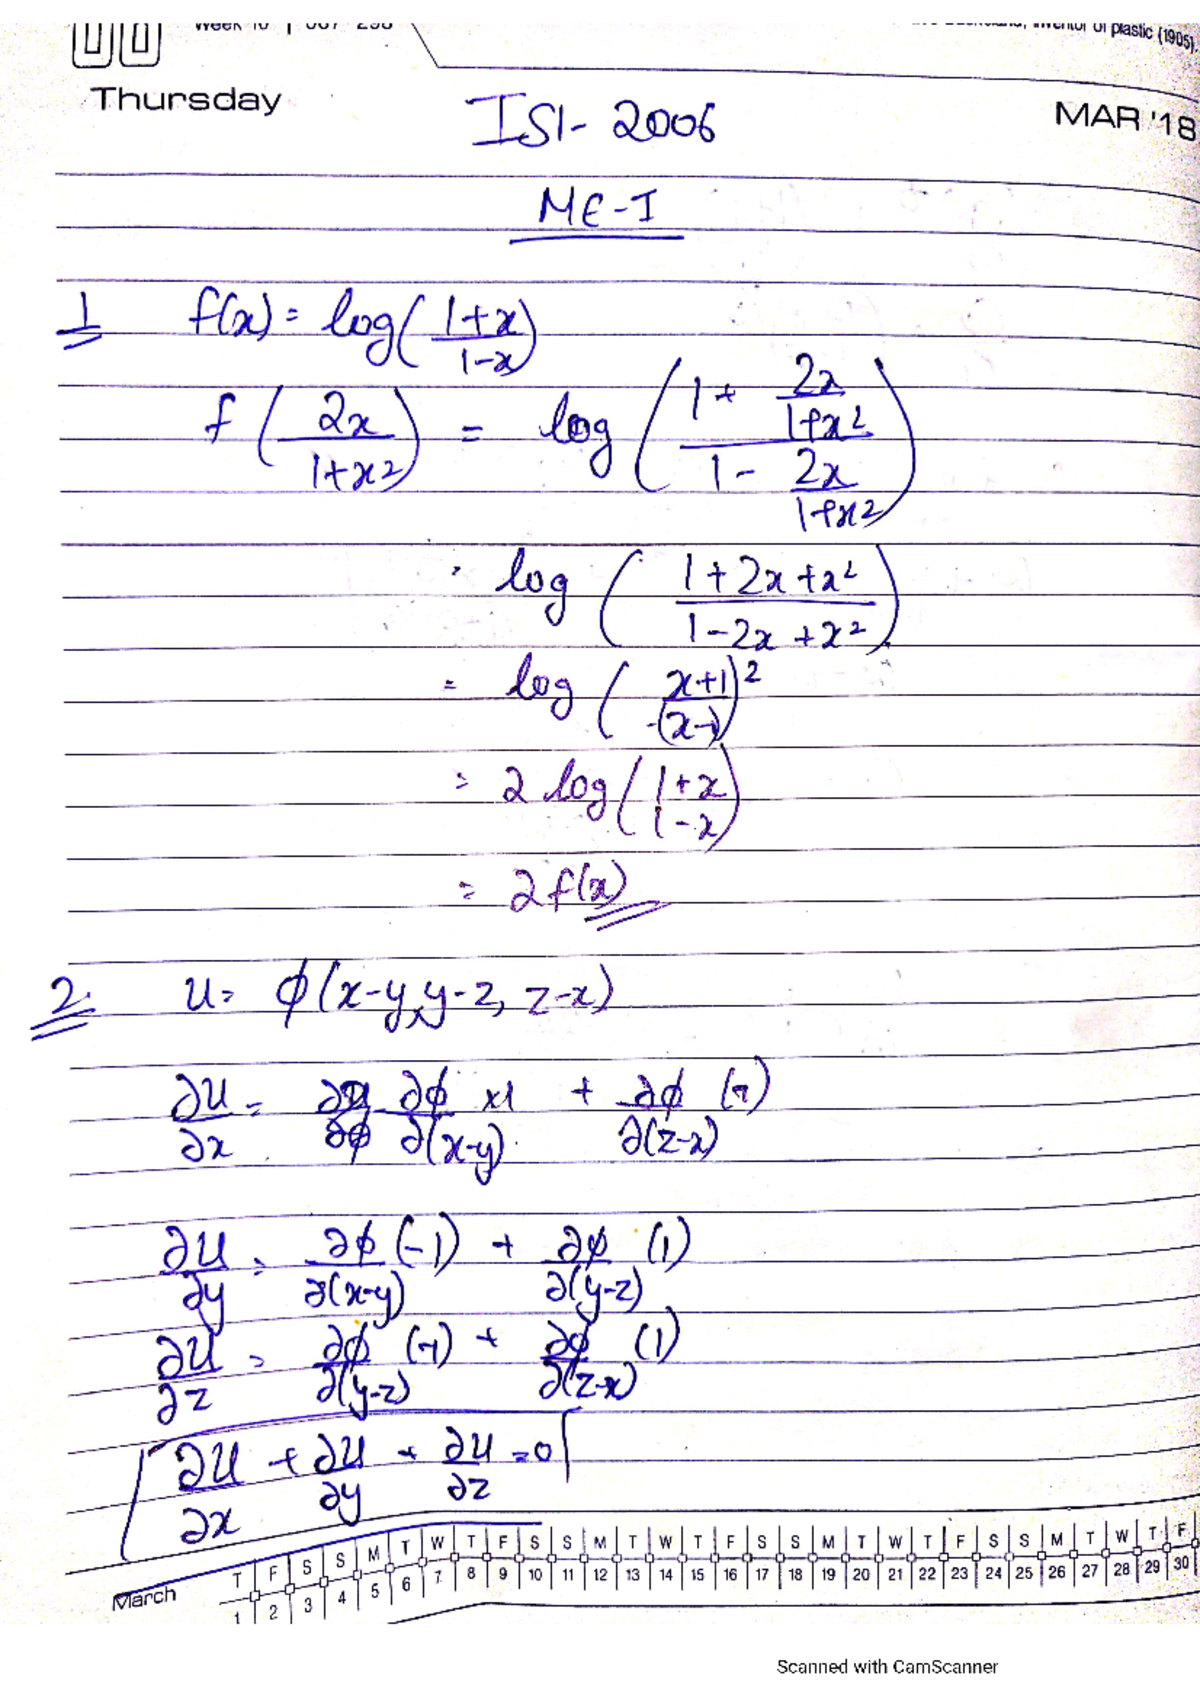 Week 10 | 067-298
Inventor of plastic (1905).
Thursday
MAR '18
ISI- 2006
ME-I
1 f(x) = log(1+x / 1-x)
f(2x / 1+x²) = log(1 + 2x/1+x² / 1 - 2x/1+x²)
log(1+2x+x² / 1-2x+x²)
= log(x+1 / (x-1))²
= 2 log(1+x / 1-x)
= 2f(x)
2. u= φ(x-y, y-z, z-x)
∂u/∂x = ∂φ/∂(x-y) x1 + ∂φ/∂(z-x) (-1)
∂u/∂y = ∂φ/∂(x-y) (-1) + ∂φ/∂(y-z) (1)
∂u/∂z = ∂φ/∂(y-z) (-1) + ∂φ/∂(z-x) (1)
∂u/∂x + ∂u/∂y + ∂u/∂z =0
T F S S M T W T F S S M T W T F S S M T W T F S S M T W T F
March 1 2 3 4 5 6 7 8 9 10 11 12 13 14 15 16 17 18 19 20 21 22 23 24 25 26 27 28 29 30
Scanned with CamScanner